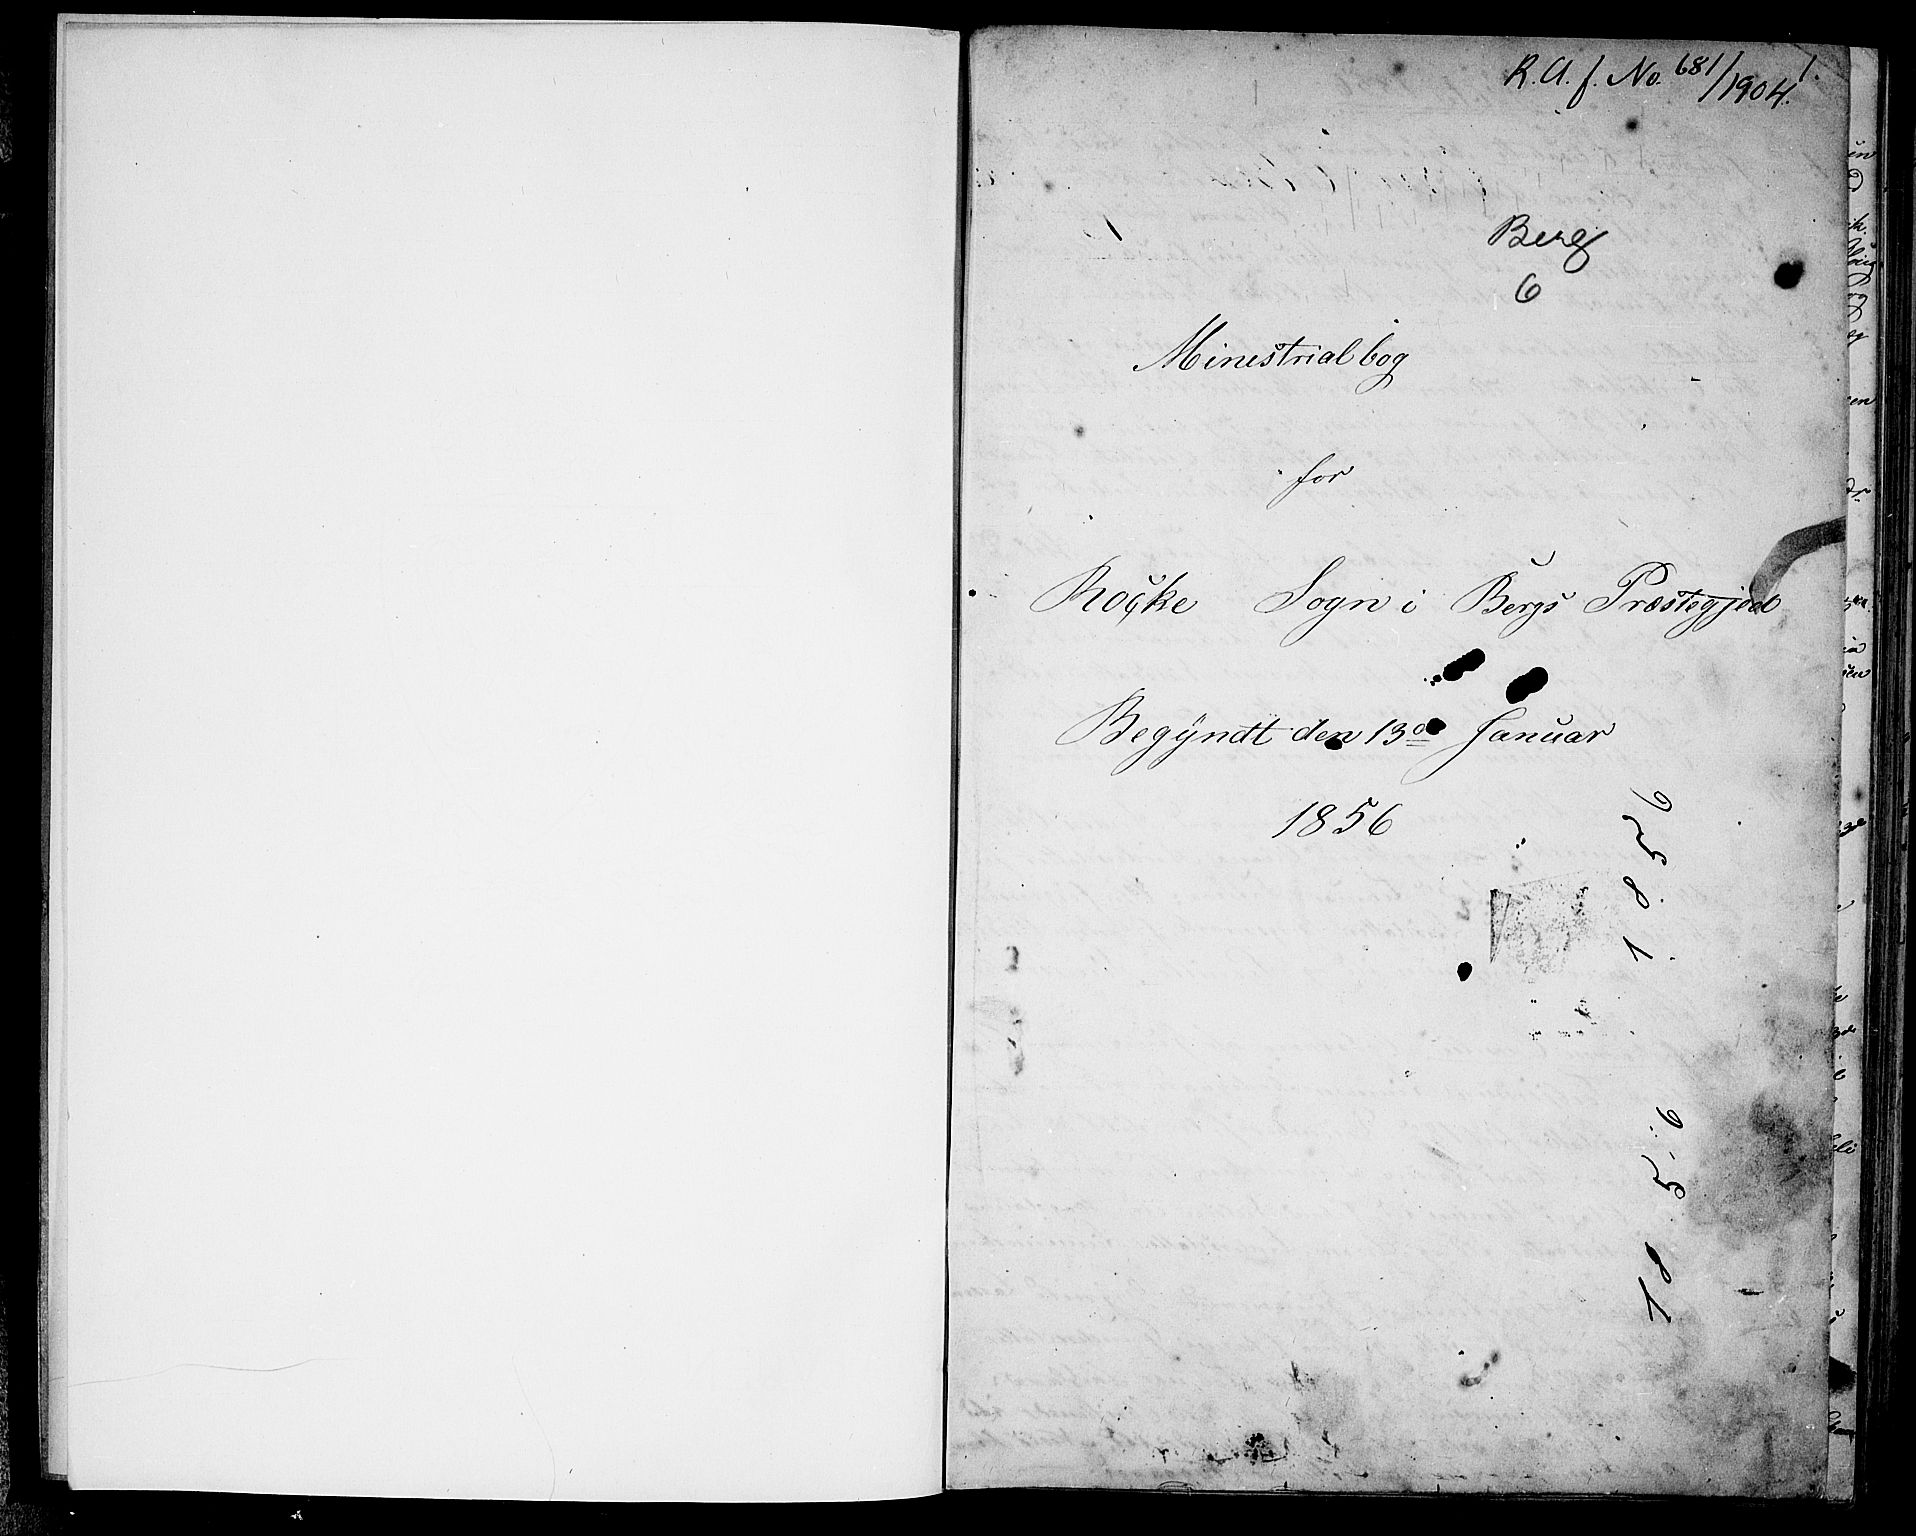 R. A. f. No. 681/1904.
1.
Berg
6
Minestrialbog
for
Rokke Sogn i Bergs Præstegjed
Begyndt den 13de Januar
1856
1 8 5 6
18 5 6